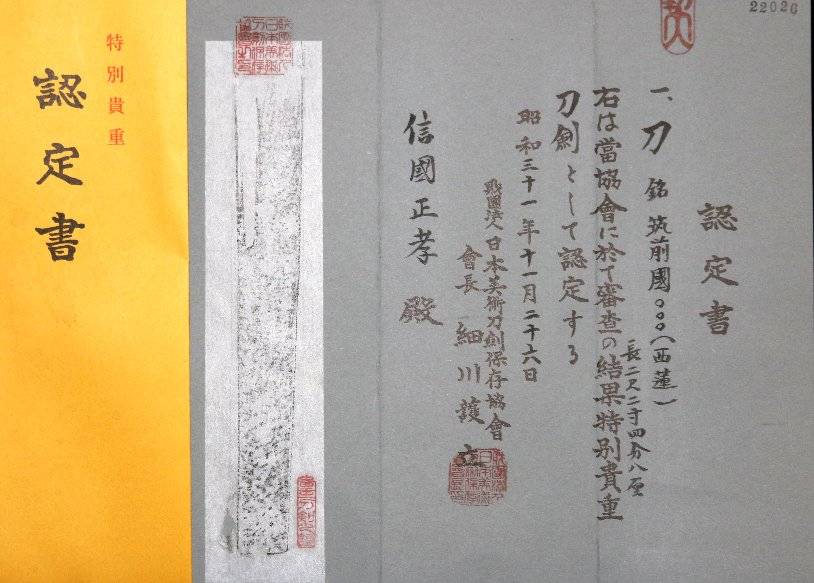 特別貴重
認定書
22026
認定書
一、刀 銘 筑前國○○○(西蓮)
長二尺二寸四分八厘
右は當協會に於て審查の結果特別貴重
刀劍として認定する
昭和三十一年十一月二十六日
財團法人日本美術刀劍保存協會
會長 細川護立
信國正孝 殿